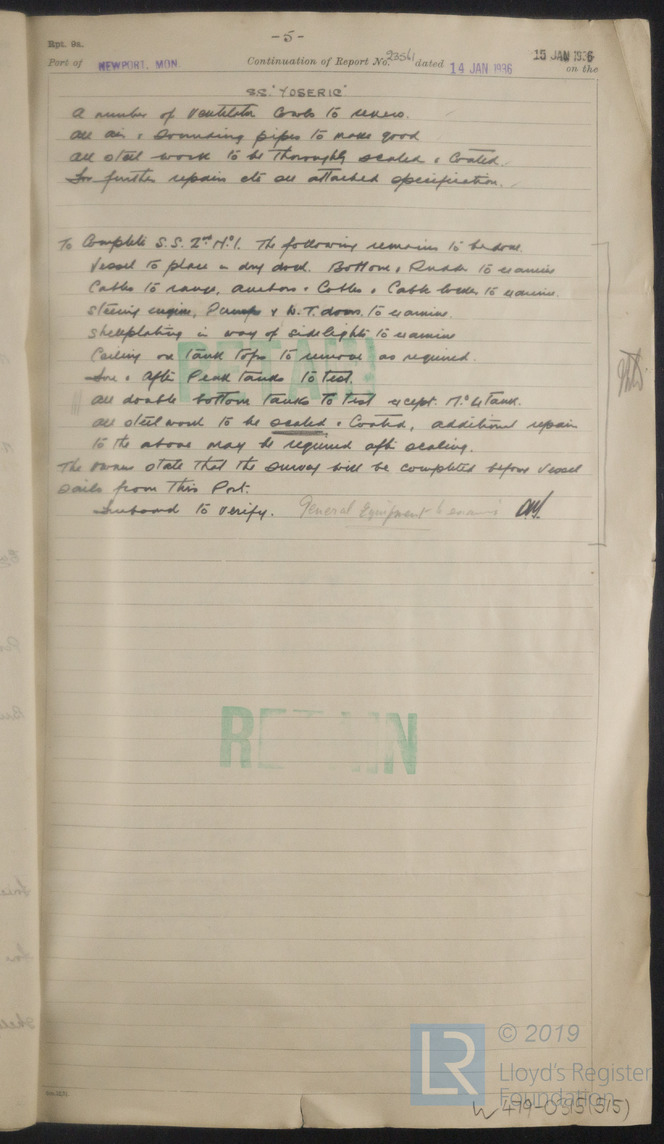 - 5 -
Rpt. 9a.
15 JAN 1936
Port of NEWPORT, MON. Continuation of Report No. 23561 dated 14 JAN 1936 on the
S.S. "YOSERIC"
A number of Ventilator Cowls to renew.
All air & Sounding pipes to make good
All steel work to be thoroughly scaled & Coated.
For further repairs etc see attached specification.
To Complete S.S. 2nd No. 1. The following remains to be done.
Vessel to place in dry dock. Bottom & Rudder to examine
Cables to range, anchors & Cables & Cable locker to examine.
Steering engine, Pumps & W.T. doors to examine.
Shellplating in way of sidelights to examine
Ceiling on tank tops to remove as required.
Fore & After Peak tanks to test.
All double bottom tanks to test except No. 4 tank.
All steel work to be scaled & Coated, additional repair
to the above may be required after scaling.
The owners state that the survey will be completed before vessel
sails from this Port.
Freeboard to verify. General Equipment to examine
RETAIN
RETAIN
© 2019
LR
Lloyd's Register
Foundation
W479-0315(5/5)